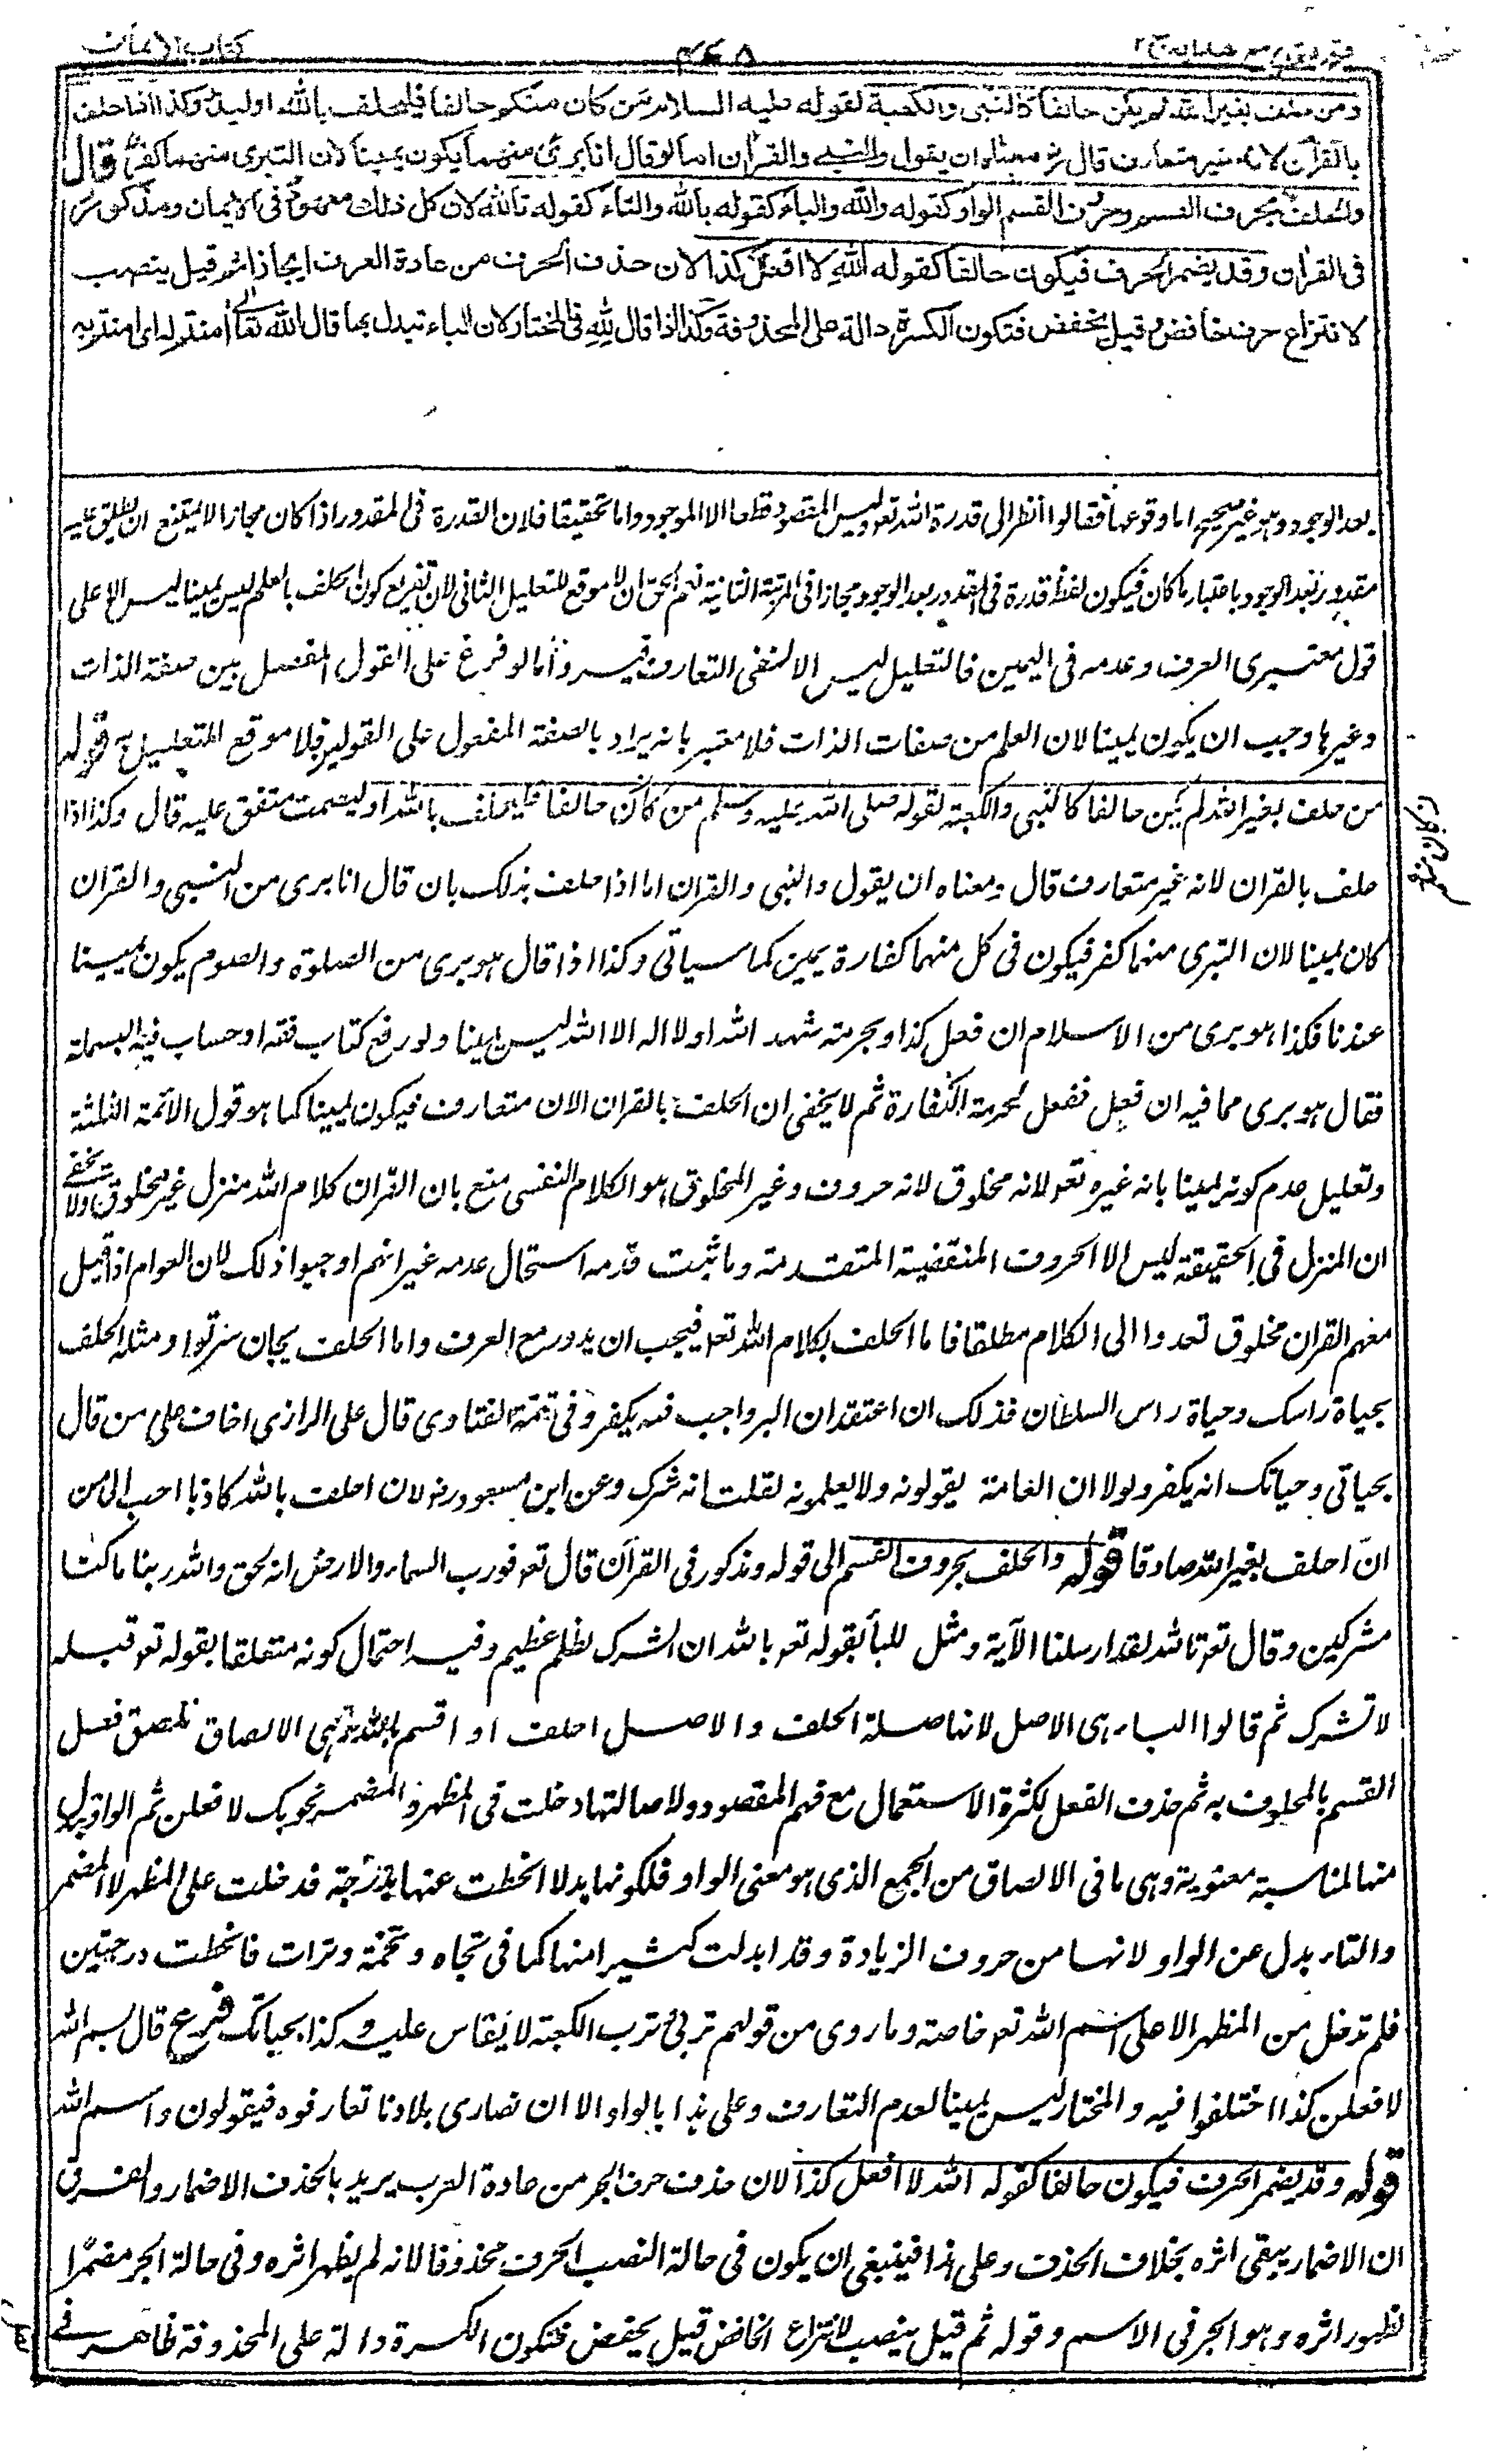 فتح القدير مع هدايه ج ٢ ٣٦٥ كتاب الايمان
ومن حلف بغير الله لم يكن حالفا كالنبى والكعبة لقوله عليه السلام من كان منكم حالفا فليحلف بالله اوليذر وكذا اذا حلف
بالقرآن لانه غير متعارف قال رض معناه ان يقول والنبى والقرآن اما لو قال انا برئ منهما يكون يمينا لان التبرى منهما كفر قال
والحلف بحروف القسم وحروف القسم الواو كقوله والله والباء كقوله بالله والتاء كقوله تالله لان كل ذلك معهود فى الايمان ومذكور
فى القرآن وقد يضمر الحرف فيكون حالفا كقوله الله لا افعل كذا لان حذف الحرف من عادة العرب ايجازا ثم قيل ينصب
لانتزاع حرف خافض وقيل يخفض فتكون الكسرة دالة على المحذوفة وكذا اذا قال لله فى المختار لان الباء تبدل بها قال الله تعالى امنتم له اى امنتم به
بعد الوجود وهو غير صحيح اما وقوعها فقالوا انظر الى قدرة الله تعه وليس المقصود قطعا الا الموجود واما تحقيقا فلان القدرة فى المقدور اذا كان مجازا لا يمتنع ان يطلق عليه
مقدور بعد الوجود باعتبار ما كان فيكون لفظ قدرة فى المقدور بعد الوجود مجازا فى المرتبة الثانية نعم الحق ان لا موقع للتعليل الثانى لان تفريع كون الحلف بالعلم ليس يمينا ليس الا على
قول معتبرى العرف وعدمه فى اليمين فالتعليل ليس الا لنفى التعارف فيه واما لو فرع على القول المفصل بين صفة الذات
وغيرها وجب ان يكون يمينا لان العلم من صفات الذات فلا معتبر بانه يراد بالصفة المفعول على القولين فلا موقع للتعليل به قوله
من حلف بغير الله لم يكن حالفا كالنبى والكعبة لقوله صلى الله عليه وسلم من كان حالفا فليحلف بالله اوليصمت متفق عليه قال وكذا اذا
حلف بالقران لانه غير متعارف قال ومعناه ان يقول والنبى والقران اما اذا حلف بذلك بان قال انا برى من النبى والقران
كان يمينا لان التبرى منهما كفر فيكون فى كل منهما كفارة يمين كما سياتى وكذا اذا قال هو برى من الصلوة والصوم يكون يمينا
عندنا فكذا هو برى من الاسلام ان فعل كذا وبحرمة شهد الله اولا اله الا الله ليس يمينا ولو رفع كتاب فقه اوحساب فيه البسملة
فقال هو برى مما فيه ان فعل ففعل لحرمة الكفارة ثم لا يخفى ان الحلف بالقران الان متعارف فيكون يمينا كما هو قول الائمة الثلثة
وتعليل عدم كونه يمينا بانه غيره تعه لانه مخلوق لانه حروف وغير المخلوق هو الكلام النفسى منع بان القران كلام الله منزل غير مخلوق ولا يخفى
ان المنزل فى الحقيقة ليس الا الحروف المنقضية المتقدمة وما ثبت قدمه استحال عدمه غير انهم اوجبوا ذلك لان العوام اذا قيل
معهم القران مخلوق تعدوا الى الكلام مطلقا فاما الحلف بكلام الله تعه فيجب ان يدور مع العرف واما الحلف بجان سرتو ومثله الحلف
بحياة راسك وحياة راس السلطان فذلك ان اعتقد ان البر واجب فيه يكفر وفى تتمة الفتاوى قال على الرازى اخاف على من قال
بحياتى وحياتك انه يكفر ولولا ان العامة يقولونه ولا يعلمونه لقلت انه شرك وعن ابن مسعود رض لان احلف بالله كاذبا احب الى من
ان احلف بغير الله صادقا قوله والحلف بحروف القسم الى قوله ومذكور فى القرآن قال تعه فورب السماء والارض انه لحق والله ربنا ما كنا
مشركين وقال تعه تالله لقد ارسلنا الآية ومثل للباء بقوله تعه بالله ان الشرك لظلم عظيم وفيه احتمال كونه متعلقا بقوله تعه قبله
لا تشرك ثم قالوا الباء هى الاصل لانها صلة الحلف والاصل احلف او اقسم بالله وهى الالصاق تلصق فعل
القسم بالمحلوف به ثم حذف الفعل لكثرة الاستعمال مع فهم المقصود ولاصالتها دخلت فى المظهر والمضمر نحو بك لافعلن ثم الواو بدل
منها لمناسبة معنوية وهى ما فى الالصاق من الجمع الذى هو معنى الواو فلكونها بدلا انحطت عنها بدرجة فدخلت على المظهر لا المضمر
والتاء بدل عن الواو لانها من حروف الزيادة وقد ابدلت كثيرا منها كما فى تجاه وتخمة وتراث فانحطت درجتين
فلم تدخل من المظهر الا على اسم الله تعه خاصة وما روى من قولهم تربى وترب الكعبة لا يقاس عليه وكذا بحياتك فرع قال بسم الله
لافعلن كذا اختلفوا فيه والمختار ليس يمينا لعدم التعارف وعلى هذا بالواو الا ان نصارى بلادنا تعارفوه فيقولون واسم الله
قوله وقد يضمر الحرف فيكون حالفا كقوله الله لا افعل كذا لان حذف حرف الجر من عادة العرب يريد بالحذف الاضمار والفرق
ان الاضمار يبقى اثره بخلاف الحذف وعلى هذا فينبغى ان يكون فى حالة النصب الحرف محذوفا لانه لم يظهر اثره وفى حالة الجر مضمرا
لظهور اثره وهو الجر فى الاسم وقوله ثم قيل ينصب لانتزاع الخافض قيل يخفض فتكون الكسرة دالة على المحذوفة ظاهر فى